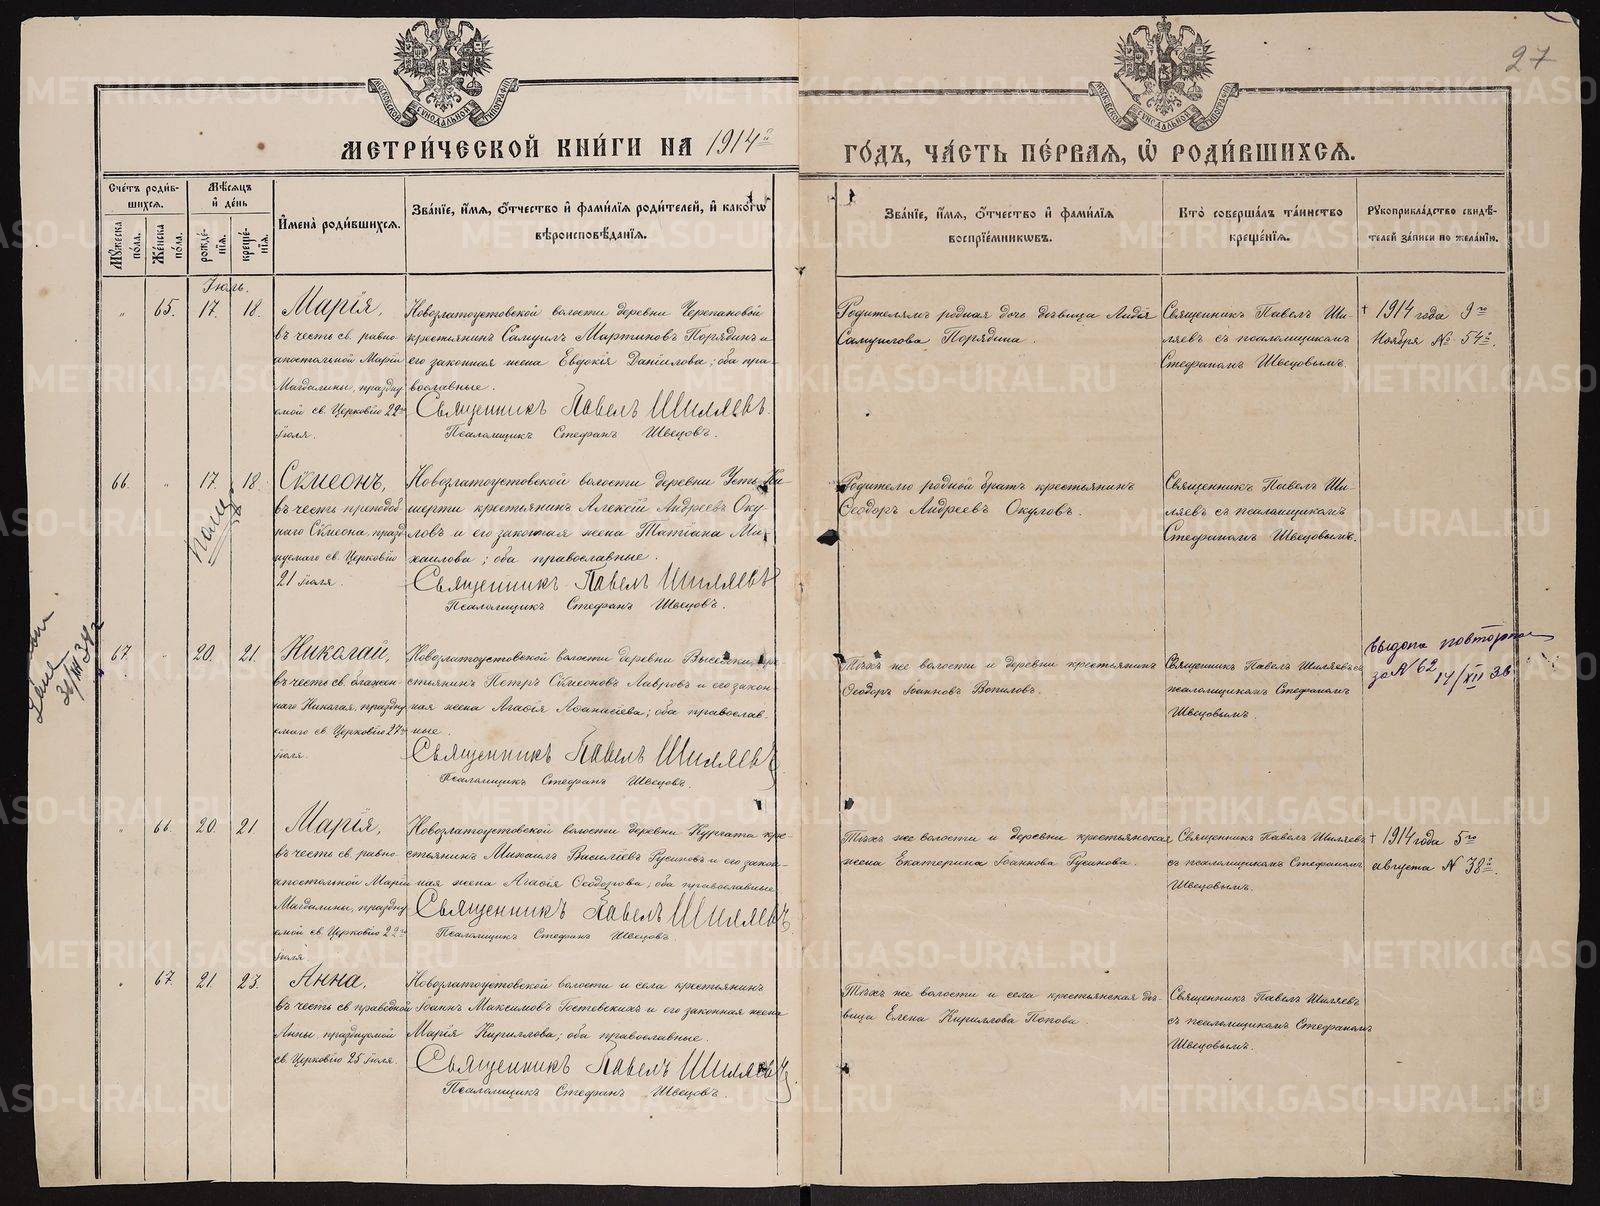 27
МОСКОВСКОЙ СѴНОДАЛЬНОЙ ТИПОГРАФІИ
МОСКОВСКОЙ СѴНОДАЛЬНОЙ ТИПОГРАФІИ
МЕТРИ́ЧЕСКОЙ КНИ́ГИ НА 1914й
ГО́ДЪ, ЧА́СТЬ ПЕ́РВАЯ, Ѡ РОДИ́ВШИХСЯ.
Сче́тъ роди́в-
шихся.
Му́жеска
по́ла.
Же́нска
по́ла.
Мѣ́сяцъ
и́ де́нь
рожде́-
нія.
креще́-
нія.
И҆мена̀ роди́вшихся.
Зва́ніе, и҆́мя, ѻ҆́тчество и҆ фами́лія роди́телей, и҆ како́гѡ
вѣроисповѣ́данія.
Зва́ніе, и҆́мя, ѻ҆́тчество и҆ фами́лія
воспріе́мникѡвъ.
Кто̀ соверша́лъ та́инство
креще́нія.
Рꙋкоприкла́дство свидѣ́-
телей за́писи по жела́нію.
Іюль.
„ 65. 17. 18.
Марія,
въ честь св. равно-
апостольной Маріи
Магдалины, праздну
емой св. Церковію 22го
іюля.
Новозлатоустовской волости деревни Черепановой
крестьянинъ Самуилъ Мартиновъ Порядинъ и
его законная жена Евдокія Даніилова; оба пра-
вославные.
Священникъ Павелъ Шиляевъ.
Псаломщикъ Стефанъ Швецовъ.
Родителямъ родная дочь девица Лидія
Самуилова Порядина.
Священникъ Павелъ Ши-
ляевъ съ псаломщикомъ
Стефаномъ Швецовымъ.
† 1914 года 9го
Ноября № 54й.
66. „ 17. 18.
Сѵмеонъ,
въ честь преподоб-
наго Сѵмеона, празд
нуемаго св. Церковію
21 іюля.
Новозлатоустовской волости деревни Усть Ки-
шерти крестьянинъ Алексій Андреевъ Оку-
ловъ и его законная жена Татіана Ми-
хаилова; оба православные.
Священникъ Павелъ Шиляевъ
Псаломщикъ Стефанъ Швецовъ.
Родителю родной братъ крестьянинъ
Ѳеодоръ Андреевъ Окуловъ.
Священникъ Павелъ Ши-
ляевъ съ псаломщикомъ
Стефаномъ Швецовымъ.
67. „ 20. 21.
Николай,
въ честь св. блажен-
наго Николая, праздну
емаго св. Церковію 27го
іюля.
Новозлатоустовской волости деревни Выселки, кре
стьянинъ Петръ Сѵмеоновъ Лавровъ и его закон-
ная жена Агаѳія Аѳанасіева; оба православ-
ные.
Священникъ Павелъ Шиляевъ
Псаломщикъ Стефанъ Швецовъ.
Тѣхъ же волости и деревни крестьянинъ
Ѳеодоръ Іоанновъ Вопиловъ.
Священникъ Павелъ Шиляевъ съ
псаломщикомъ Стефаномъ
Швецовымъ.
выдана повторно
за № 62 14/XII 36
„ 66. 20. 21.
Марія,
въ честь св. равно-
апостольной Маріи
Магдалины, праздну
емой св. Церковію 22го
іюля.
Новозлатоустовской волости деревни Кургата кре-
стьянинъ Михаилъ Василіевъ Русиновъ и его закон-
ная жена Агаѳія Ѳеодорова; оба православные
Священникъ Павелъ Шиляевъ
Псаломщикъ Стефанъ Швецовъ.
Тѣхъ же волости и деревни крестьянская
жена Екатерина Іоаннова Русинова.
Священникъ Павелъ Шиляевъ
съ псаломщикомъ Стефаномъ
Швецовымъ.
† 1914 года 5го
августа № 38й.
„ 67. 21. 23.
Анна,
въ честь св праведной
Анны празднуемой
св. Церковію 25 іюля.
Новозлатоустовской волости и села крестьянинъ
Іоаннъ Максимовъ Гостевскихъ и его законная жена
Марія Кириллова; оба православные.
Священникъ Павелъ Шиляевъ
Псаломщикъ Стефанъ Швецовъ.
Тѣхъ же волости и села крестьянская дѣ-
вица Елена Кириллова Попова.
Священникъ Павелъ Шиляевъ
съ псаломщикомъ Стефаномъ
Швецовымъ.
METRIKI.GASO-URAL.RU